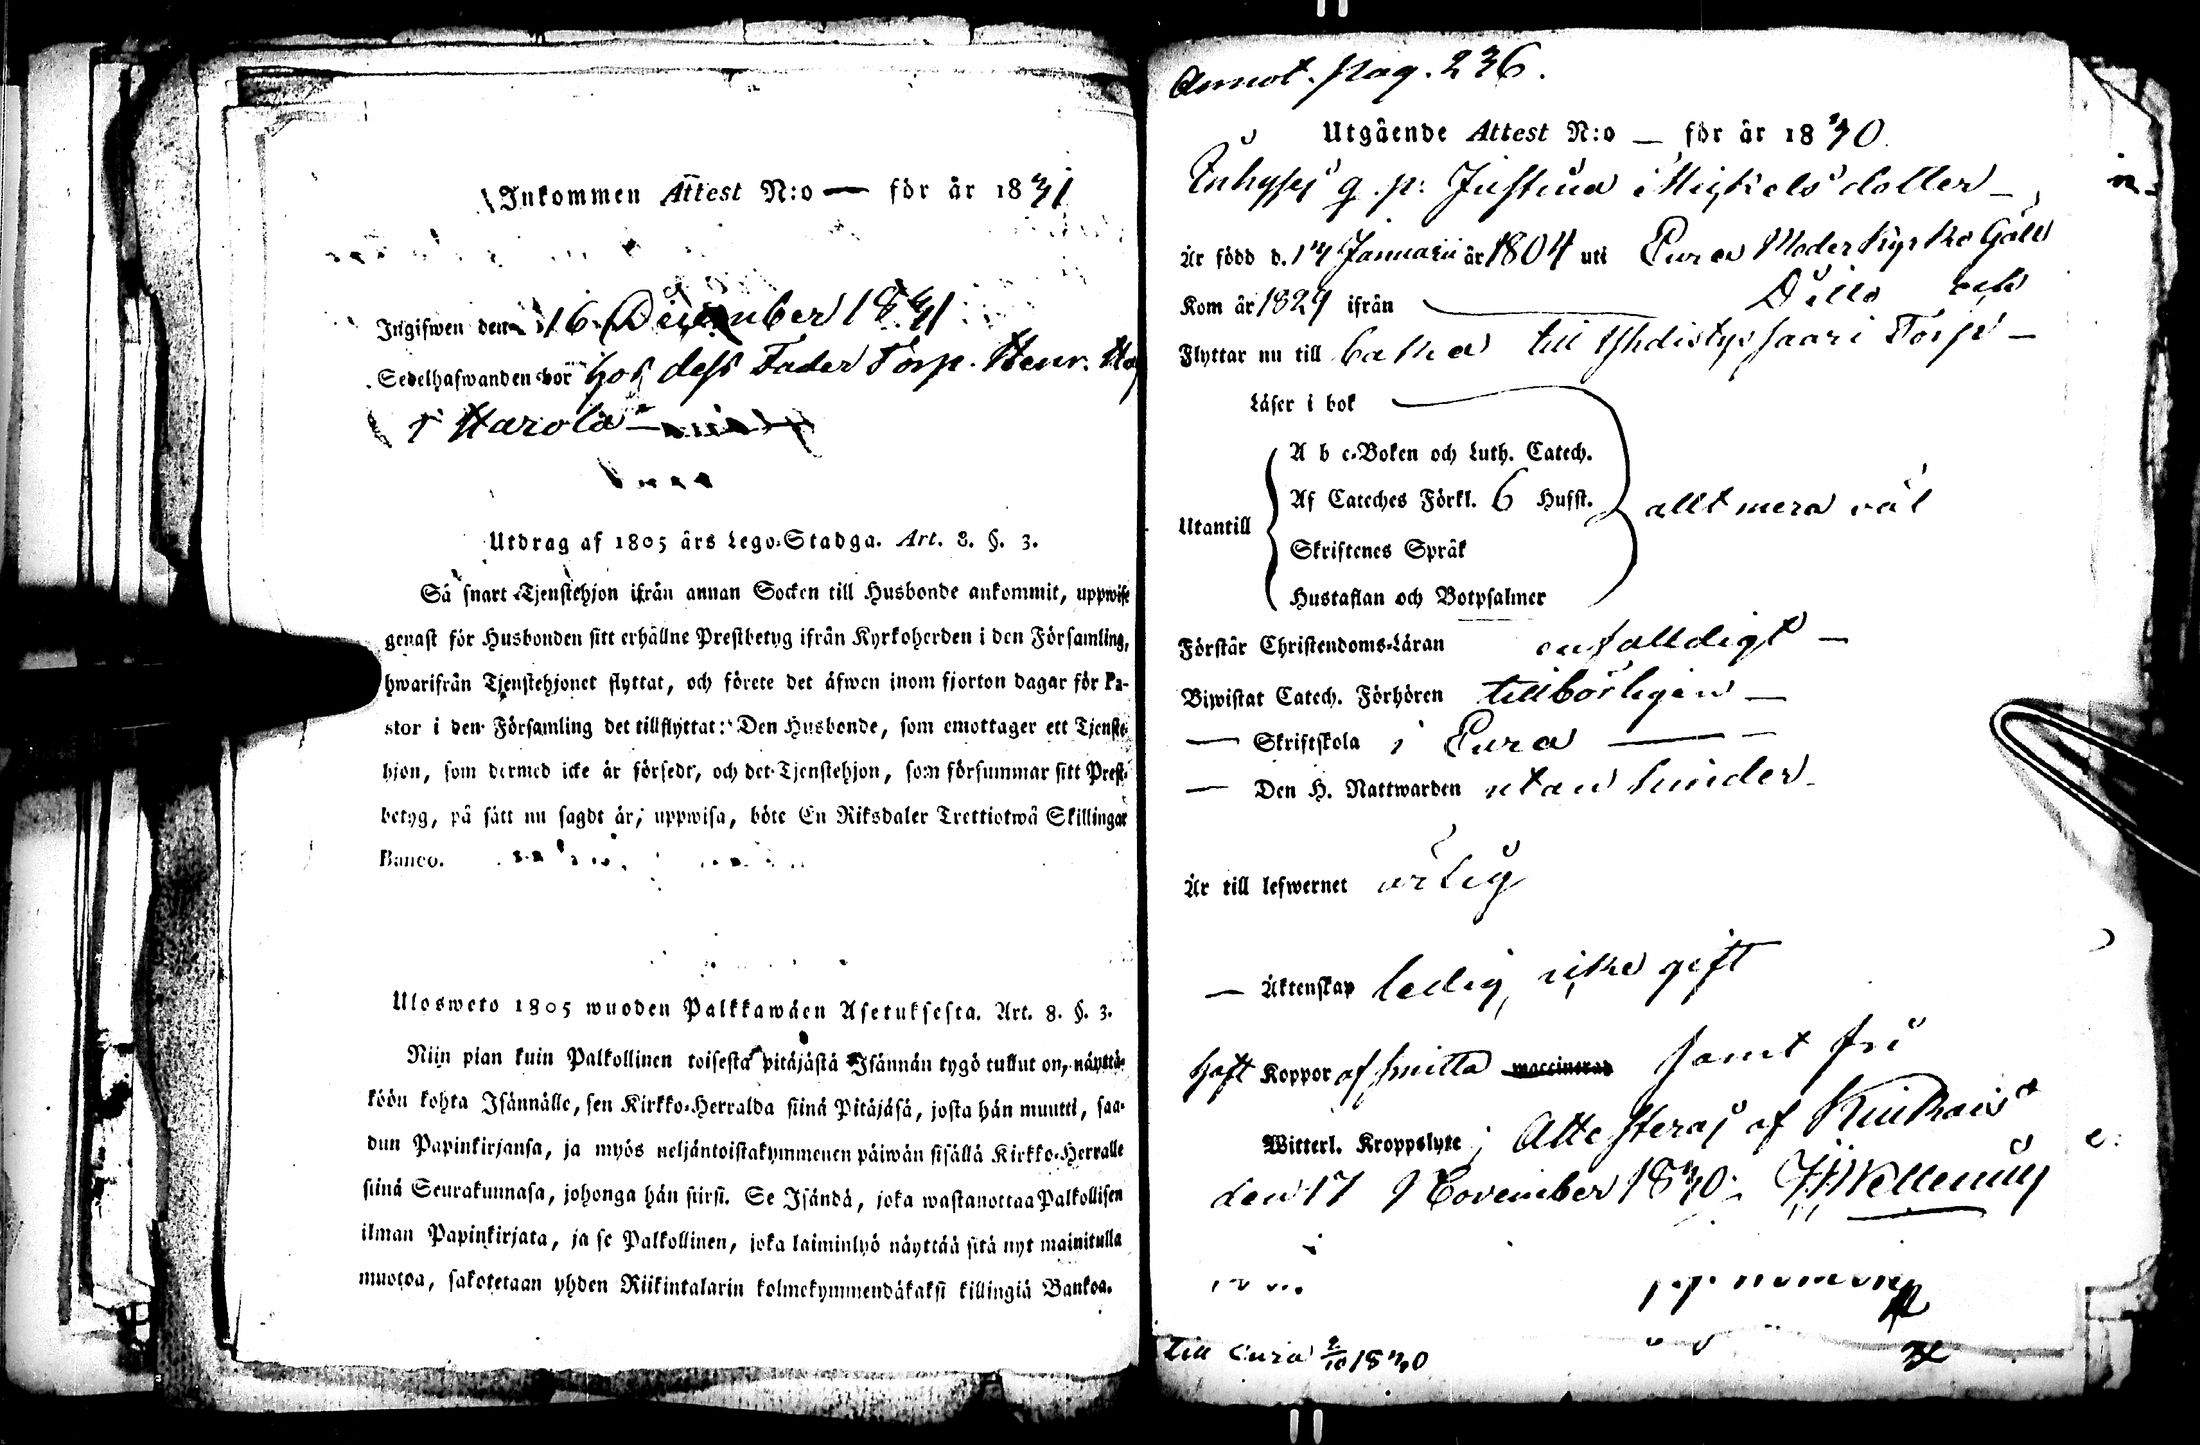 Inkommen Attest N:o — för år 1831
Ingifwen den 16 December 1831
Sedelhafwanden bor hos dess Fader Torp. Henr.
i Harola
Utdrag af 1805 års Lego-Stadga. Art. 8. §. 3.
Så snart Tjenstehjon ifrån annan Socken till Husbonde ankommit, uppwise
genast för Husbonden sitt erhållne Prestbetyg ifrån Kyrkoherden i den Församling,
hwarifrån Tjenstehjonet flyttat, och förete det äfwen inom fjorton dagar för Pa-
stor i den Församling det tillflyttat: Den Husbonde, som emottager ett Tjenste-
hjon, som dermed icke är försedt, och det Tjenstehjon, som försummar sitt Prest-
betyg, på sätt nu sagdt är, uppwisa, böte En Riksdaler Trettiotwå Skillingar
Banco.
Ulosweto 1805 wuoden Palkkawäen Asetuksesta. Art. 8. §. 3.
Niin pian kuin Palkollinen toisesta pitäjästä Isännän tygö tullut on, näyttä-
köön kohta Isännälle, sen Kirkko-Herralda siinä Pitäjäsä, josta hän muutti, saa-
dun Papinkirjansa, ja myös neljäntoistakymmenen päiwän sisällä Kirkko-Herralle
siinä Seurakunnasa, johonga hän siirsi. Se Isändä, joka wastanottaa Palkollisen
ilman Papinkirjata, ja se Palkollinen, joka laiminlyö näyttää sitä nyt mainitulla
muotoa, sakotetaan yhden Riikintalarin kolmekymmendäkaksi killingiä Bankoa.
Annot. pag. 236.
Utgående Attest N:o — för år 1830
Inhyses q. p. Justina Mickels dotter —
Är född d. 14 Januarii år 1804 uti Eura Moder Kyrko Gäll
Kom år 1829 ifrån — Ditto och
Flyttar nu till till Yhdistyssaari Torp —
Läser i bok
A b c-Boken och Luth. Catech.
Af Cateches Förkl. 6 Hufst.
allt mera väl
Utantill
Skriftenes Språk
Hustaflan och Botpsalmer
Förstår Christendoms-Läran enfalldigt —
Biwistat Catech. Förhören tillbörligen —
— Skriftskola i Eura —
— Den H. Nattwarden utan hinder
Är till lefwernet ärlig
— Äktenskap ledig, icke gift
haft Koppor af smitta waccinerad samt fri
Witterl. Kroppslyte; Attesteras af Kiukais
den 17 November 1830.
till Eura 2/10 1830